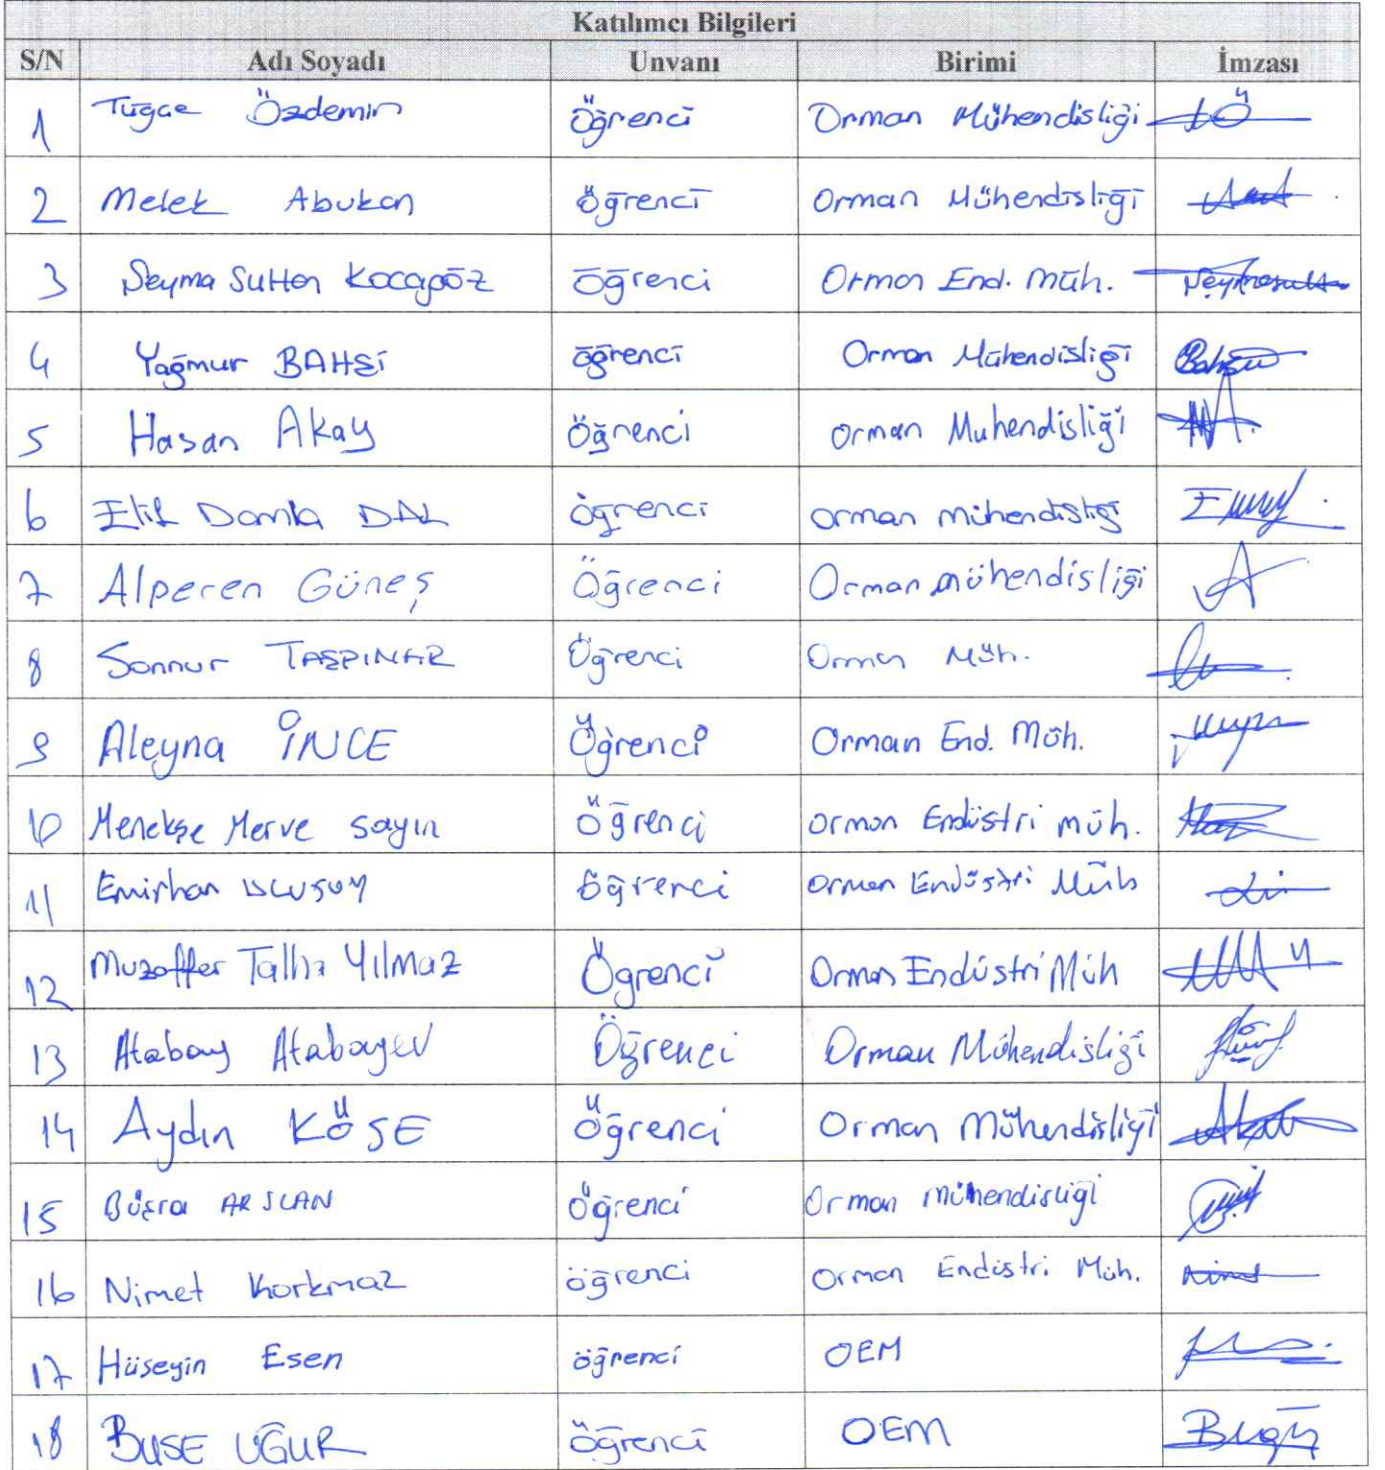 Katılımcı Bilgileri
S/N Adı Soyadı Unvanı Birimi İmzası
1 Tuğçe Özdemir Öğrenci Orman Mühendisliği tÖ
2 Melek Abukan Öğrenci Orman Mühendisliği
3 Şeyma Sultan Kocagöz Öğrenci Orman End. Müh.
4 Yağmur BAHŞİ öğrenci Orman Mühendisliği
5 Hasan Akay Öğrenci Orman Muhendisliği
6 Elif Damla DAL öğrenci orman mühendisliği
7 Alperen Güneş Öğrenci Orman mühendisliği
8 Sonnur TAŞPINAR Öğrenci Orman Müh.
9 Aleyna İNCE Öğrenci Orman End. Müh.
10 Menekşe Merve sayın Öğrenci orman Endüstri müh.
11 Emirhan ULUSOY öğrenci orman Endüstri Müh
12 Muzaffer Talha Yılmaz Öğrenci Orman Endüstri Müh
13 Atabay Atabayev Öğrenci Orman Mühendisliği
14 Aydın KÖSE Öğrenci Orman Mühendisliği
15 Büşra ARSLAN öğrenci Orman mühendisliği
16 Nimet Korkmaz öğrenci Orman Endüstri Müh.
17 Hüseyin Esen öğrenci OEM
18 BUSE UĞUR öğrenci OEM